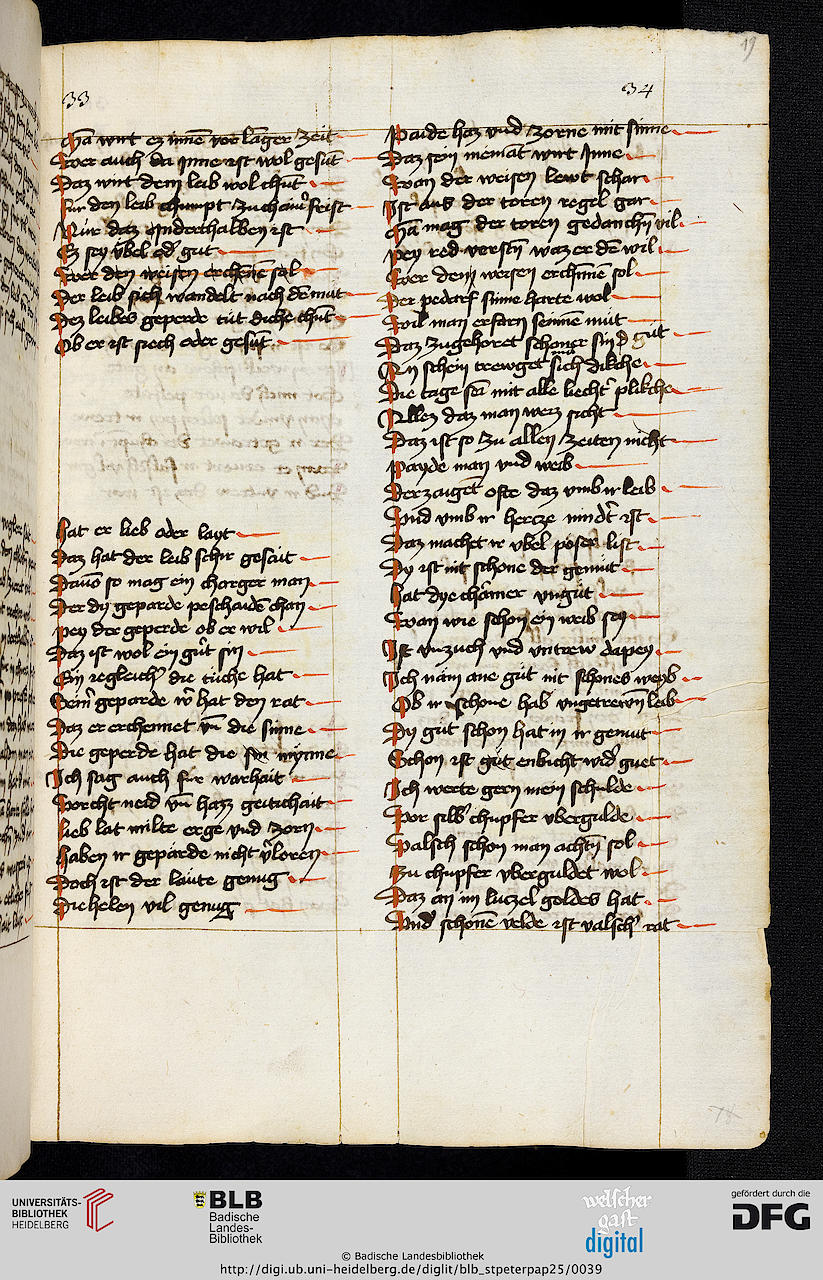 19
33
Man wirt ez innē vor lāger zeit
Swer auch da Inne ist wol gesūt
Daz wirt dem leib wol chūt
Fur den leib chumpt zu chain' frist
Nur daz Inderthalben ist
Ez sey v̈bel od' gut
Swer den weisen erchenē sol
Der leib sich wandelt nach dē mut
Dez leibes geperde tut dicke chūt
Ob er ist siech oder gesūt
hat er lieb oder layt
Daz hat der leib schir gesait
Dauō so mag ein charger man
Der dy geparde peschaidē chan
pey der geperde ob er wil
Daz ist wol ein gut sin
Ein iegleich' die tuche hat
Seim' geparde w' hat den rat
Daz er erchennet vn̄ die sinne
Die geperde hat die sin mynne
Ich sag auch fur warhait
Vorcht neid vn̄ hazz geitichait
lieb lat milte erge vnd zorn
haben ir geparde nicht v'loren
Doch ist der laute genug
Die helen vil genug
34
Paide haz vnd zorne mit sinne
Daz sein niemāt wirt Inne
Wan der weisen lewt schar
Ist aus der toren regel gar
Man mag der toren gedanchn̄ vil
pey red verstn̄ waz er dē wil
Swer dem weisen erchinne sol
Der pedarf sinne harte wol
Wil man erfarn seinnē mut
Daz zugehoret schoner sin d' gut
Ain schein trewget sich dikche
Die tage sei mit alle liecht' plikche
Allez daz man weiz sicht
Daz ist so zu allen zeiten nicht
Payde man vnd weib
Der zaiget ofte daz vmb ir leib
Vnd vmb ir hercze nindt' ist
Daz machet ir vbel poser list
Dy ist nit schone der gemut
hat dye chamer vngut
Wan wie schon ein weib sey
Ist vnzuch vnd vntrew dapey
Ich nām ane gut nit schones weyb
Ob ir schone hab' vngetrewn̄ leib
Dy gut schon hat in ir gemut
Schon ist gut enbicht wid' guet
Ich werte gern mein schulde
Vor silb' chupfer vbergulde
Valsch schon man achtn̄ sol
Zu chupfer vberguldet wol
Daz an im luczel goldes hat
Vnd' schonē velde ist valsch' rat
UNIVERSITÄTS-
BIBLIOTHEK
HEIDELBERG
BLB
Badische
Landes-
Bibliothek
welscher
gast
digital
gefördert durch die
DFG
© Badische Landesbibliothek
http://digi.ub.uni-heidelberg.de/diglit/blb_stpeterpap25/0039